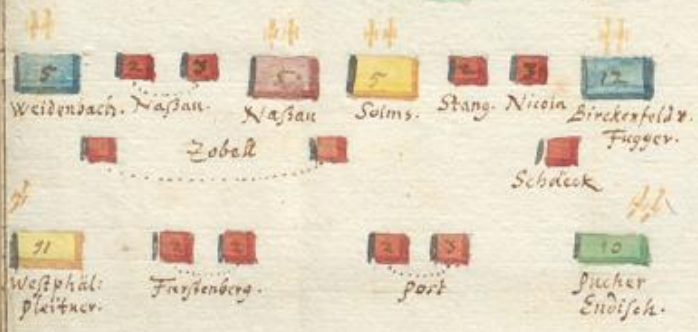 5 2 3 5 5 2 3 12
Weidenbach. Naßau. Naßau Solms. Stang. Nicola Birckenfeld v.
Fugger.
Zobell
Schöeck
11 2 2 2 3 10
Westphäl: Fürstenberg. port pucher
pleitner. Endisch.